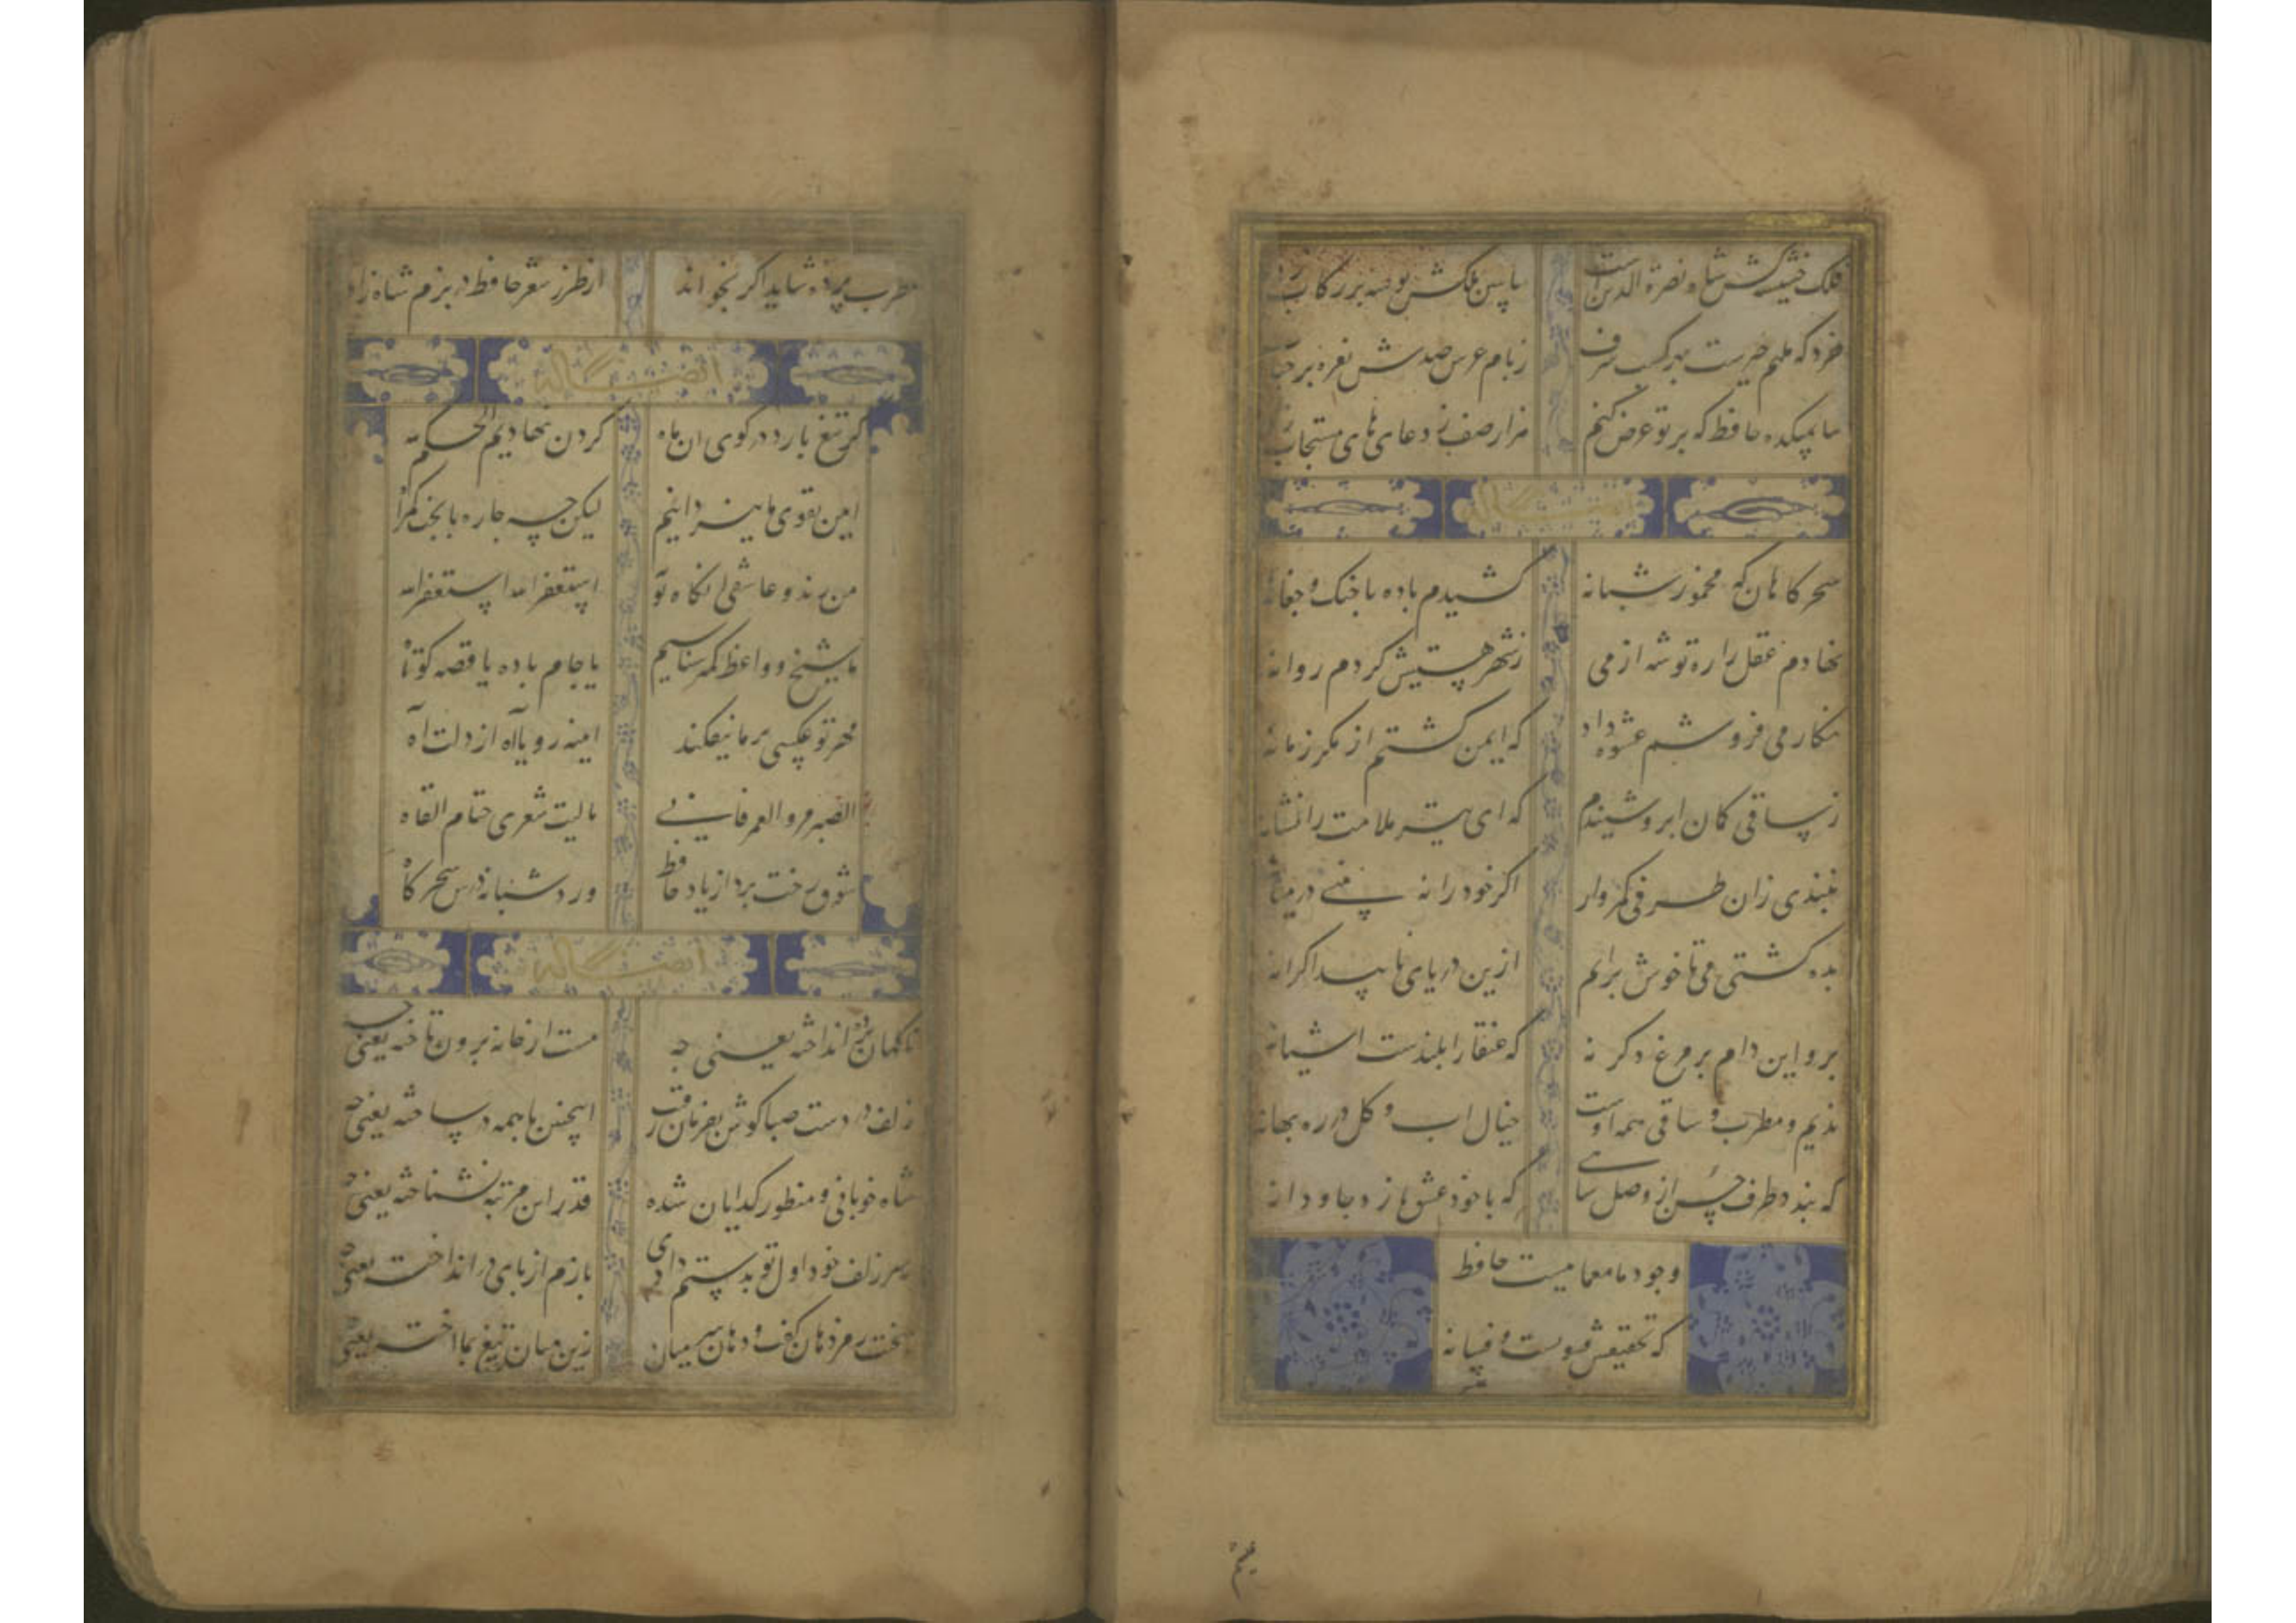 فلک جنیبه کش شاه نصرة الدین است
بیا ببین ملکش بوسه بر رکاب زده
خرد که ملهم غیب است بهر کسب شرف
ز بام عرش صدش بوسه بر جناب زده
بیا بمیکده حافظ که بر تو عرض کنم
هزار صف ز دعاهای مستجاب زده
سحرکاهان که مخمور شبانه
کشیدم باده با جنک و جغانه
نهادم عقل را ره توشه از می
ز شهر هستیش کردم روانه
نکار می فروشم عشوه داد
که ایمن کشتم از مکر زمانه
ز ساقی کمان ابرو شنیدم
که ای تیر ملامت را نشانه
نبندی زان طرفی کمروار
اکر خود را نه بینی در میانه
بده کشتی می تا خوش برانم
ازین دریای ناپیدا کرانه
برو این دام بر مرغ دکر نه
که عنقا را بلندست اشیانه
ندیم و مطرب و ساقی همه اوست
خیال اب و کل در ره بهانه
که بندد طرف حسن از وصل شاهی
که با خود عشق بازد جاودانه
وجود ما معماییست حافظ
که تحقیقش فسونست و فسانه
مطرب پرده شاید اکر بخواند
از طرز شعر حافظ در بزم شاه زاده
ایضا له
کر تیغ بارد در کوی ان ماه
کردن نهادیم الحکم لله
ایین تقوی ما نیز دانیم
لیکن چه جاره با بخت کمراه
من رند و عاشق انکاه توبه
استغفر الله استغفر الله
ما شیخ و واعظ کمتر شناسیم
یا جام باده یا قصه کوتاه
مهر تو عکسی بر ما نیفکند
اینه رویا آه از دلت اه
الصبر مر و العمر فانی
یا لیت شعری حتام القاه
شوق رخت برد از یاد حافظ
ورد شبانه درس سحرکاه
ایضا له
ناکهان پرده انداخته یعنی چه
مست از خانه برون تاخته یعنی چه
زلف در دست صبا کوش بفرمان رقیب
اینچنین با همه در ساخته یعنی چه
شاه خوبانی و منظور کدایان شده
قدر این مرتبه نشناخته یعنی چه
سر زلف خود اول تو بدستم دادی
بازم از پای در انداخته یعنی چه
سخنت رمز دهان کفت و دهان سر میان
زین میان تیغ بما اخته یعنی چه